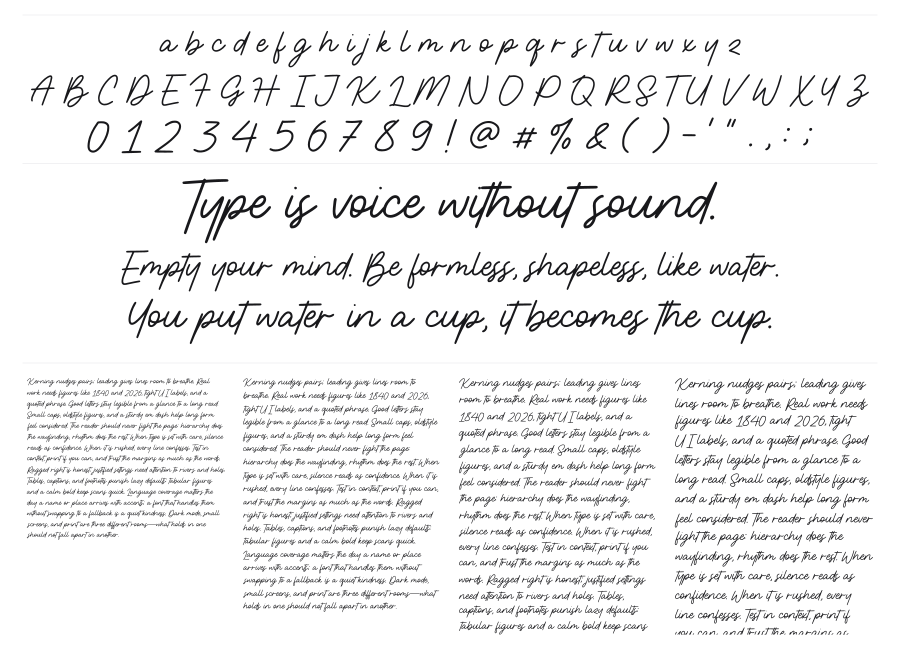 a b c d e f g h i j k l m n o p q r s t u v w x y z
A B C D E F G H I J K L M N O P Q R S T U V W X Y Z
0 1 2 3 4 5 6 7 8 9 ! @ # % & ( ) - ' " . , : ;
Type is voice without sound.
Empty your mind. Be formless, shapeless, like water.
You put water in a cup, it becomes the cup.
Kerning nudges pairs; leading gives lines room to breathe. Real
work needs figures like 1840 and 2026, tight UI labels, and a
quoted phrase. Good letters stay legible from a glance to a long read.
Small caps, oldstyle figures, and a sturdy em dash help long form
feel considered. The reader should never fight the page hierarchy does
the wayfinding, rhythm does the rest. When type is set with care, silence
reads as confidence. When it is rushed, every line confesses. Test in
context, print if you can, and trust the margins as much as the words.
Ragged right is honest; justified settings need attention to rivers and holes.
Tables, captions, and footnotes punish lazy defaults. Tabular figures
and a calm bold keep scans quick. Language coverage matters the
day a name or place arrives with accents; a font that handles them
without swapping to a fallback is a quiet kindness. Dark mode, small
screens, and print are three different rooms—what holds in one
should not fall apart in another.
Kerning nudges pairs; leading gives lines room to
breathe. Real work needs figures like 1840 and 2026,
tight UI labels, and a quoted phrase. Good letters stay
legible from a glance to a long read. Small caps, oldstyle
figures, and a sturdy em dash help long form feel
considered. The reader should never fight the page
hierarchy does the wayfinding, rhythm does the rest. When
type is set with care, silence reads as confidence. When it is
rushed, every line confesses. Test in context, print if you can,
and trust the margins as much as the words. Ragged
right is honest; justified settings need attention to rivers and
holes. Tables, captions, and footnotes punish lazy defaults.
Tabular figures and a calm bold keep scans quick.
Language coverage matters the day a name or place
arrives with accents; a font that handles them without
swapping to a fallback is a quiet kindness. Dark mode,
small screens, and print are three different rooms—what
holds in one should not fall apart in another.
Kerning nudges pairs; leading gives lines
room to breathe. Real work needs figures like
1840 and 2026, tight UI labels, and a
quoted phrase. Good letters stay legible from a
glance to a long read. Small caps, oldstyle
figures, and a sturdy em dash help long form
feel considered. The reader should never fight
the page hierarchy does the wayfinding,
rhythm does the rest. When type is set with care,
silence reads as confidence. When it is rushed,
every line confesses. Test in context, print if you
can, and trust the margins as much as the
words. Ragged right is honest; justified settings
need attention to rivers and holes. Tables,
captions, and footnotes punish lazy defaults.
Tabular figures and a calm bold keep scans
Kerning nudges pairs; leading gives
lines room to breathe. Real work needs
figures like 1840 and 2026, tight
UI labels, and a quoted phrase. Good
letters stay legible from a glance to a
long read. Small caps, oldstyle figures,
and a sturdy em dash help long form
feel considered. The reader should never
fight the page hierarchy does the
wayfinding, rhythm does the rest. When
type is set with care, silence reads as
confidence. When it is rushed, every
line confesses. Test in context, print if
you can, and trust the margins as